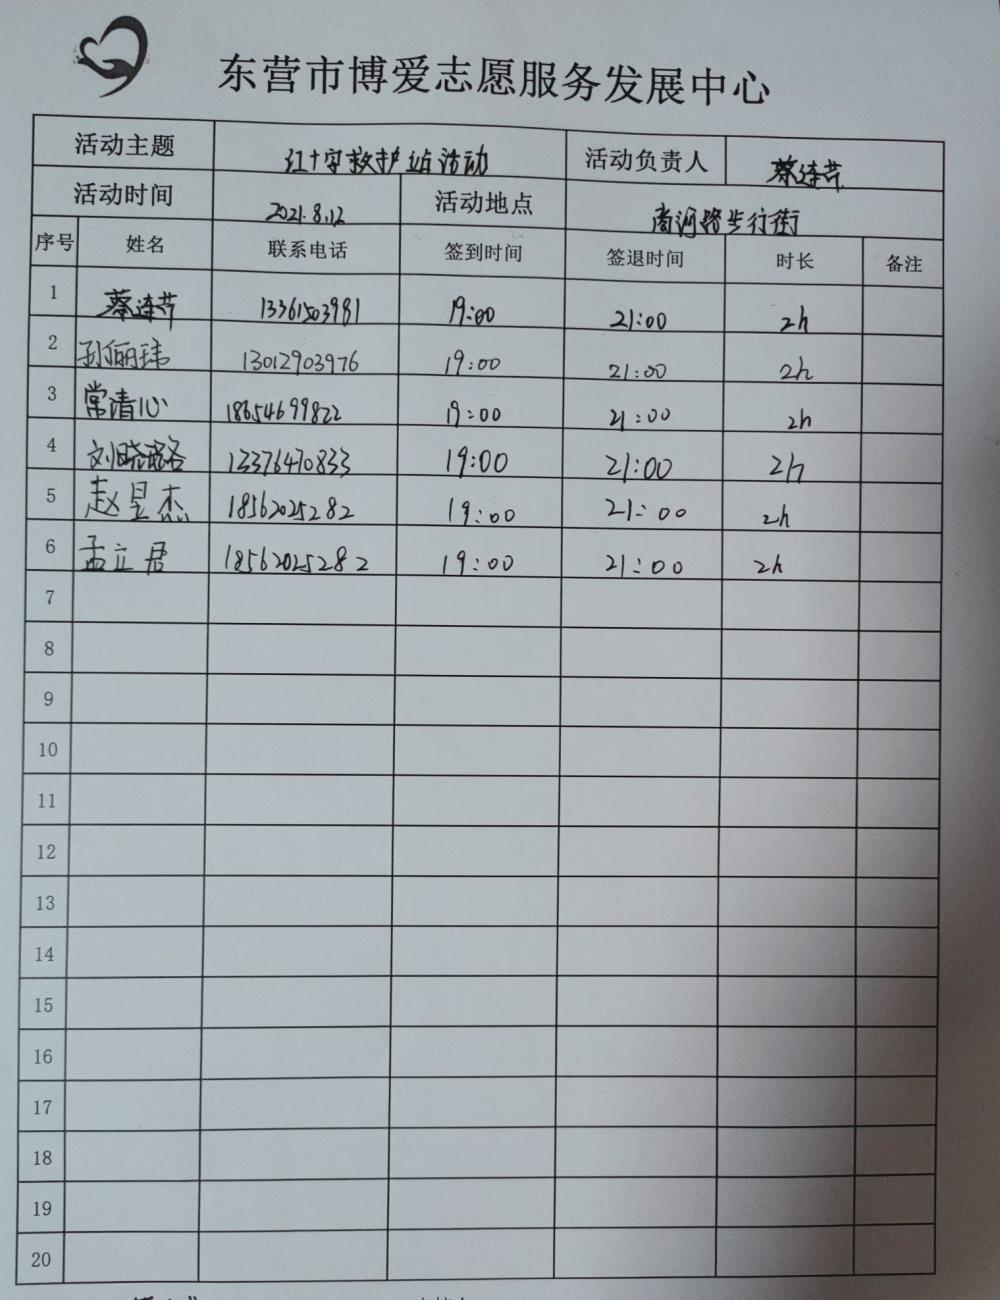 东营市博爱志愿服务发展中心
活动主题 红十字救护站活动 活动负责人 蔡连芹
活动时间 2021.8.12 活动地点 商河路步行街
序号 姓名 联系电话 签到时间 签退时间 时长 备注
1 蔡连芹 13361503981 19:00 21:00 2h
2 孙俪玮 13012903976 19:00 21:00 2h
3 常清心 18654699822 19:00 21:00 2h
4 刘晓璐 13376470833 19:00 21:00 2h
5 赵昱杰 18562025282 19:00 21:00 2h
6 孟立君 18562025282 19:00 21:00 2h
7
8
9
10
11
12
13
14
15
16
17
18
19
20